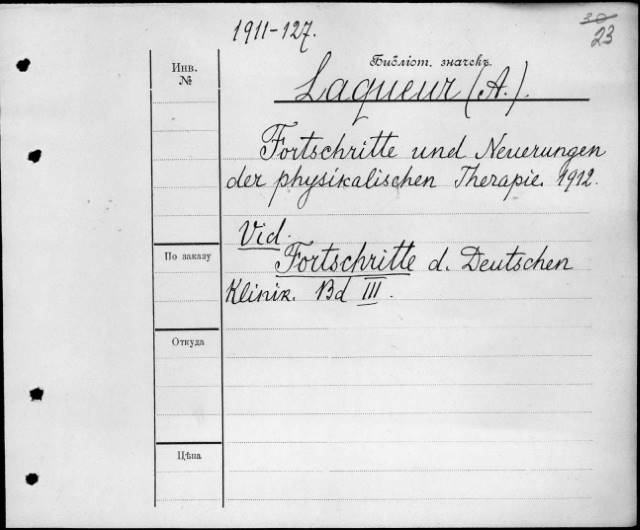 1911-127.
30
23
Инв.
№
Библіот. значекъ
Laqueur (A.).
Fortschritte und Neuerungen
der physikalischen Therapie. 1912.
Vid.
Fortschritte d. Deutschen
Klinik. Bd III.
По заказу
Откуда
Цѣна